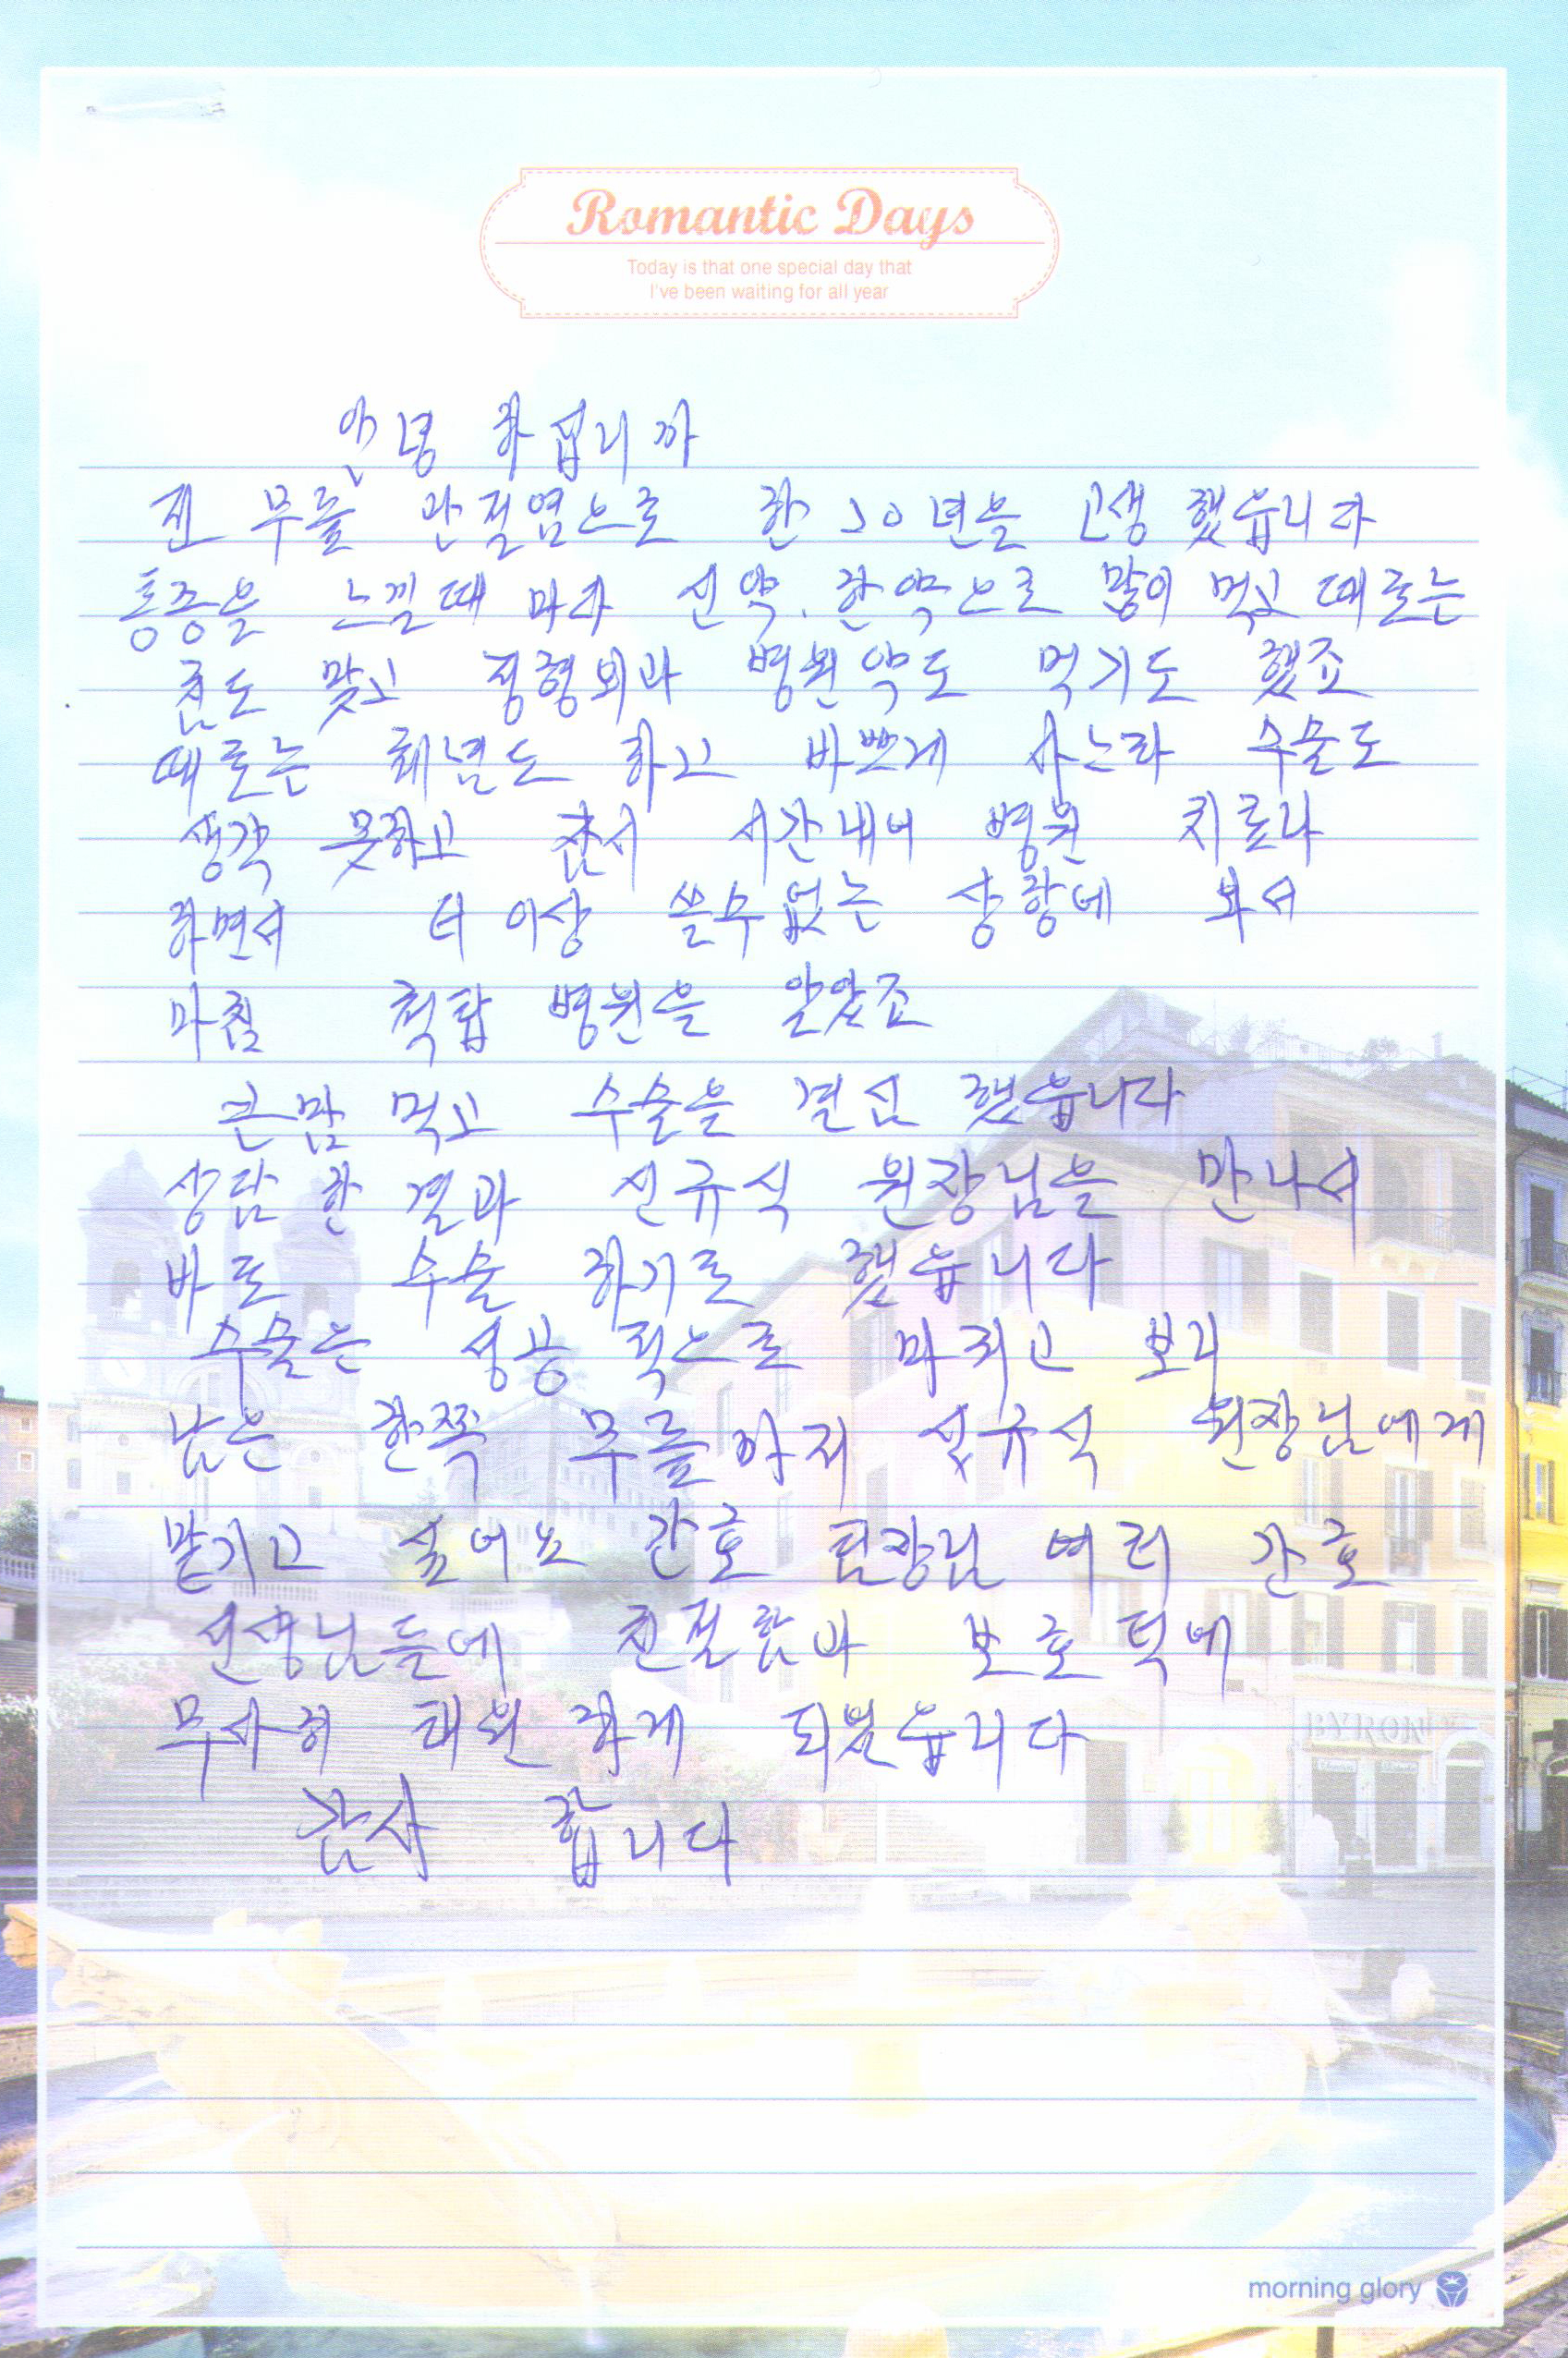 Romantic Days
Today is that one special day that
I've been waiting for all year
안녕 하십니까
전 무릎 관절염으로 한 20년을 고생 했습니다
통증을 느낄때 마다 신약. 한약으로 많이 먹고 때로는
침도 맞고 정형외과 병원약도 먹기도 했죠
때로는 체념도 하고 바쁘게 사느라 수술도
생각 못하고 잠시 시간내어 병원 치료나
하면서 더 이상 쓸수 없는 상황에 와서
마침 척탑 병원을 알았죠
큰맘 먹고 수술을 결심 했습니다
상담 한 결과 신규식 원장님을 만나서
바로 수술 하기로 했습니다
수술은 성공 적으로 마치고 보니
남은 한쪽 무릎 마저 신규식 원장님에게
맡기고 싶어요 간호 팀장님 여러 간호
선생님들에 친절함과 보호 덕에
무사히 퇴원 하게 되었습니다
감사 합니다
BYRON
morning glory